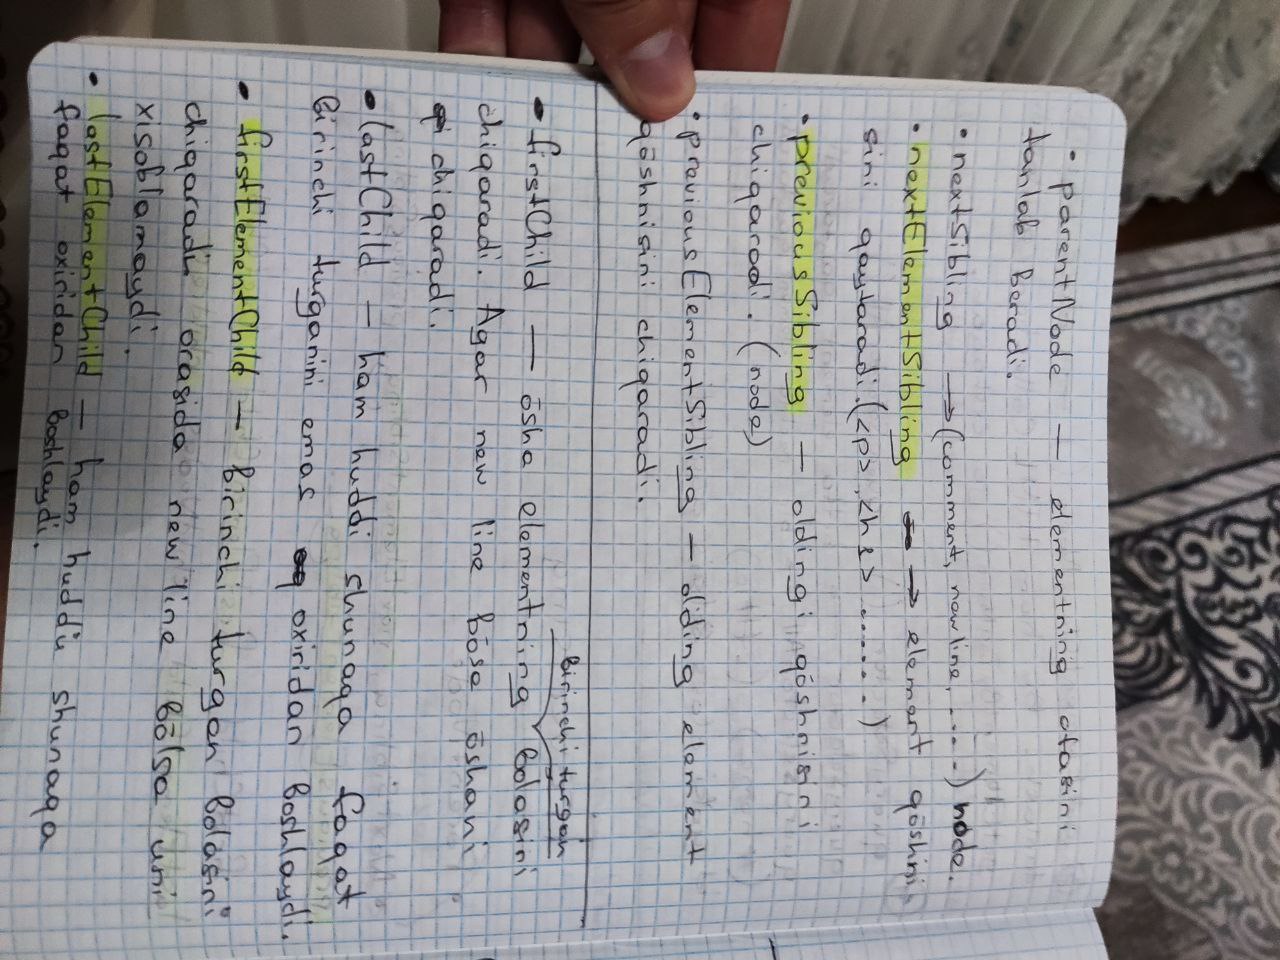 • parentNode — elementning otasini
tanlab beradi.
• nextSibling → (comment, newline, .....) node.
• nextElementSibling → element qōshni
sini qaytaradi. (<p>, <h1> .......)
• previousSibling — oldingi qōshnisini
chiqaradi. (node)
• previousElementSibling — olding element
qōshnisini chiqaradi.
birinchi turgan
• firstChild — ōsha elementning bolasini
chiqaradi. Agar new line bōse ōshani
chiqaradi.
• lastChild — ham huddi shunaqa faqat
birinchi turganini emas oxiridan boshlaydi.
• firstElementChild — birinchi turgan bolasini
chiqaradi orasida new line bōlsa uni
xisoblamaydi.
• lastElementChild — ham huddi shunaqa
faqat oxiridan boshlaydi.